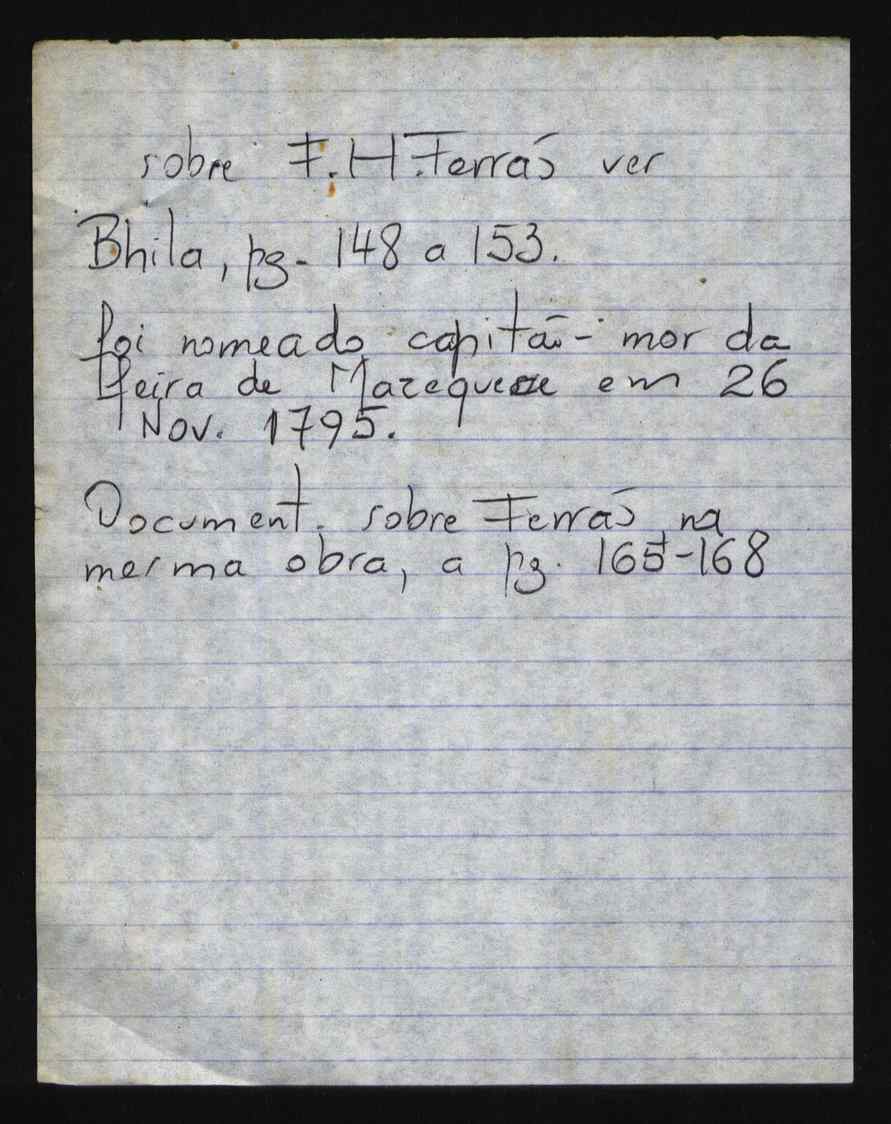 sobre F. H. Ferrás ver
Bhila, pg. 148 a 153.
foi nomeado capitão-mor da
feira de Mazequece em 26
Nov. 1795.
Document. sobre Ferrás na
mesma obra, a pg. 165-168